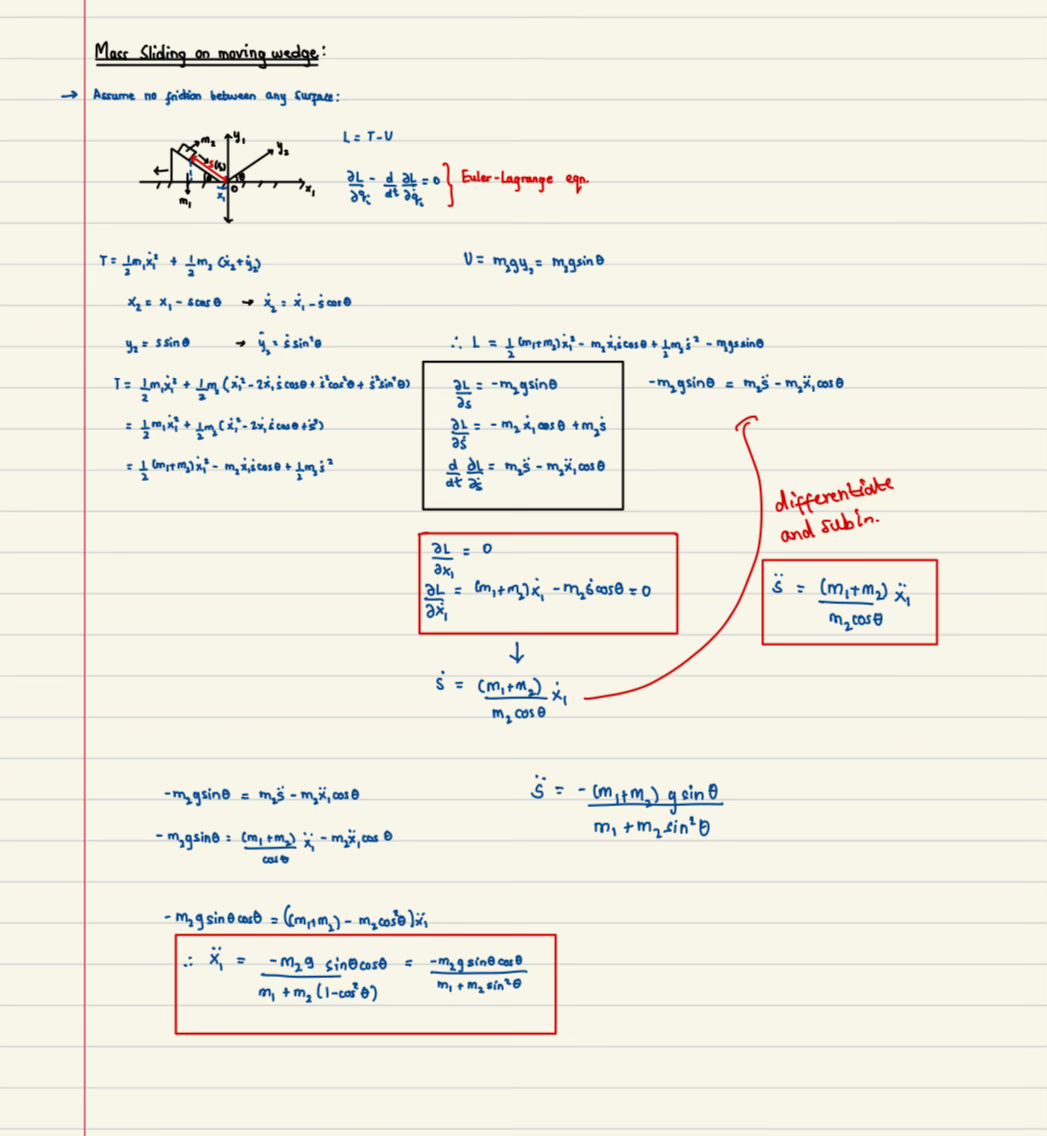 Mass Sliding on moving wedge:
→ Assume no friction between any surface:
m₂ y₁ y₂ s(t) θ θ 0 x₁ x₁ m₁
L = T-U
∂L/∂qᵢ - d/dt ∂L/∂q̇ᵢ = 0 } Euler-Lagrange eqn.
T = ½m₁ẋ₁² + ½m₂(ẋ₂+ẏ₂)
U = m₂gy₂ = m₂gsinθ
x₂ = x₁ - scosθ → ẋ₂ = ẋ₁ - ṡcosθ
y₂ = ssinθ → ẏ₂ = ṡsin²θ
∴ L = ½(m₁+m₂)ẋ₁² - m₂ẋ₁ṡcosθ + ½m₂ṡ² - m₂gssinθ
T = ½m₁ẋ₁² + ½m₂(ẋ₁² - 2ẋ₁ṡcosθ + ṡ²cos²θ + ṡ²sin²θ)
= ½m₁ẋ₁² + ½m₂(ẋ₁² - 2ẋ₁ṡcosθ + ṡ²)
= ½(m₁+m₂)ẋ₁² - m₂ẋ₁ṡcosθ + ½m₂ṡ²
∂L/∂s = -m₂gsinθ
∂L/∂ṡ = -m₂ẋ₁cosθ + m₂ṡ
d/dt ∂L/∂ṡ = m₂s̈ - m₂ẍ₁cosθ
-m₂gsinθ = m₂s̈ - m₂ẍ₁cosθ
differentiate
and sub in.
∂L/∂x₁ = 0
∂L/∂ẋ₁ = (m₁+m₂)ẋ₁ - m₂ṡcosθ = 0
↓
ṡ = (m₁+m₂)/(m₂cosθ) ẋ₁
s̈ = (m₁+m₂)/(m₂cosθ) ẍ₁
-m₂gsinθ = m₂s̈ - m₂ẍ₁cosθ
-m₂gsinθ = (m₁+m₂)/cosθ ẍ₁ - m₂ẍ₁cosθ
s̈ = -(m₁+m₂)gsinθ/(m₁+m₂sin²θ)
-m₂gsinθcosθ = ((m₁+m₂) - m₂cos²θ)ẍ₁
∴ ẍ₁ = -m₂g sinθcosθ/(m₁+m₂(1-cos²θ)) = -m₂gsinθcosθ/(m₁+m₂sin²θ)